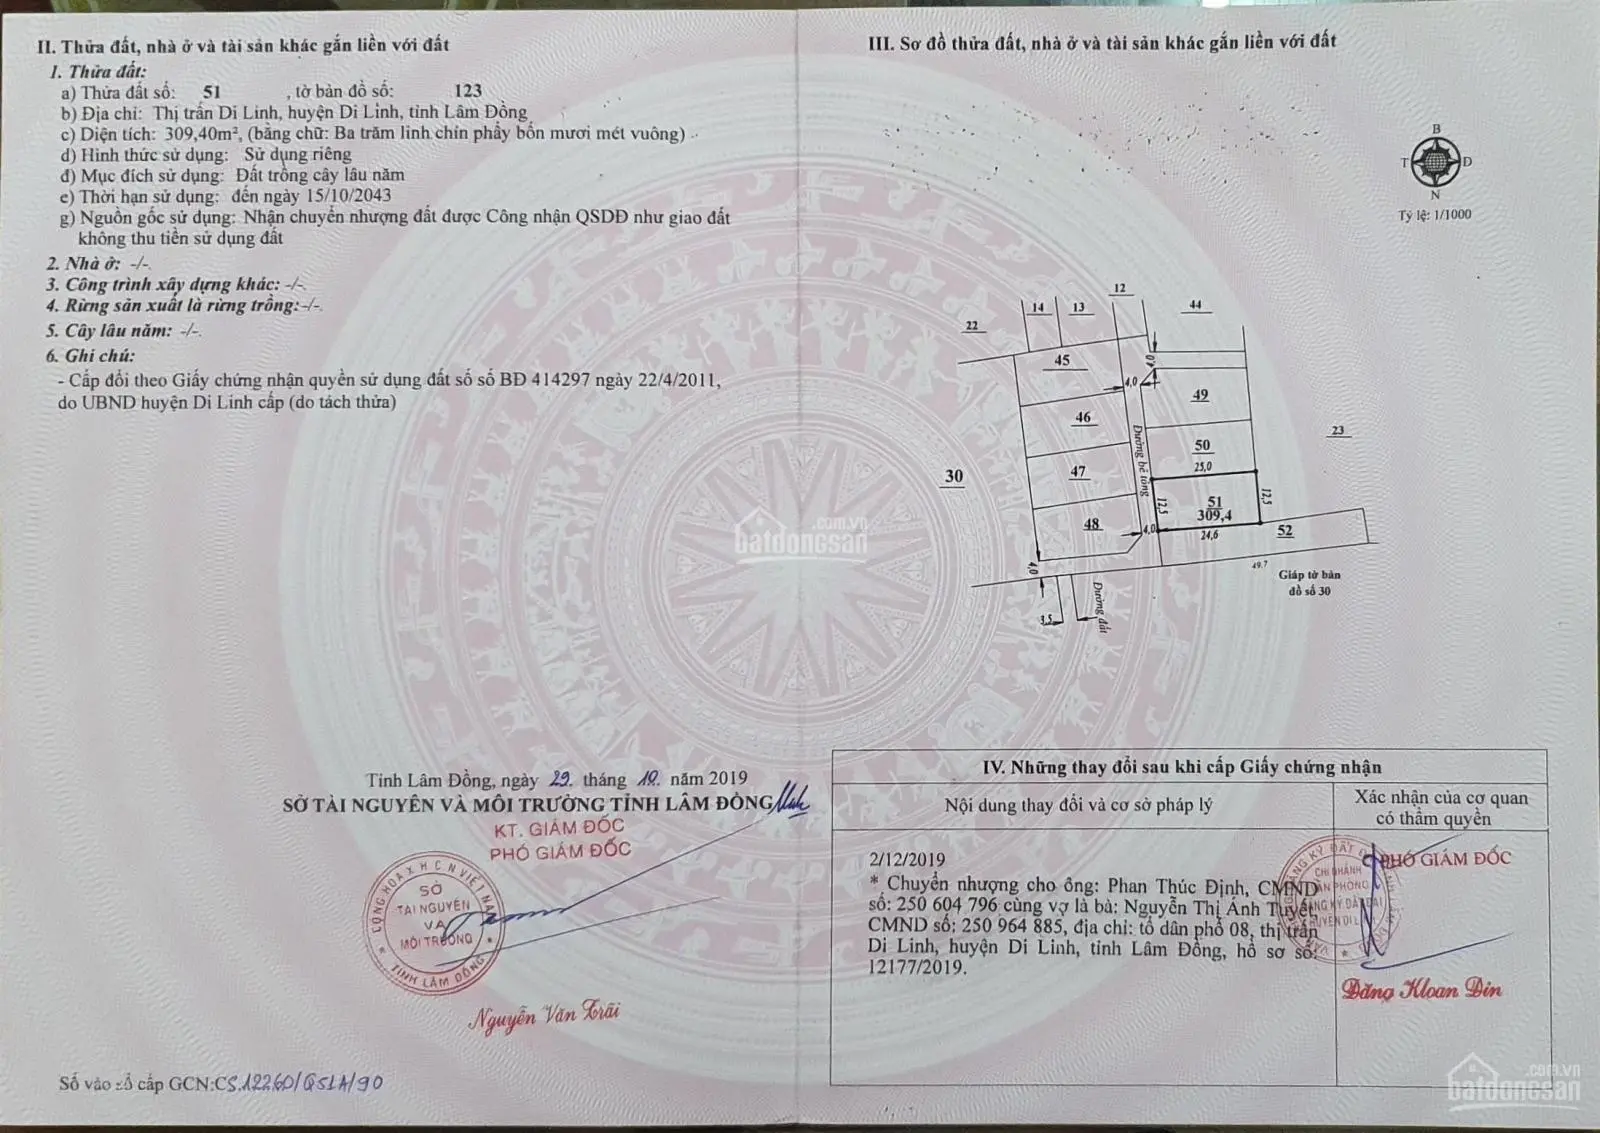 II. Thửa đất, nhà ở và tài sản khác gắn liền với đất
1. Thửa đất:
a) Thửa đất số: 51 , tờ bản đồ số: 123
b) Địa chỉ: Thị trấn Di Linh, huyện Di Linh, tỉnh Lâm Đồng
c) Diện tích: 309,40m², (bằng chữ: Ba trăm linh chín phẩy bốn mươi mét vuông)
d) Hình thức sử dụng: Sử dụng riêng
đ) Mục đích sử dụng: Đất trồng cây lâu năm
e) Thời hạn sử dụng: đến ngày 15/10/2043
g) Nguồn gốc sử dụng: Nhận chuyển nhượng đất được Công nhận QSDĐ như giao đất
không thu tiền sử dụng đất
2. Nhà ở: -/-
3. Công trình xây dựng khác: -/-
4. Rừng sản xuất là rừng trồng:-/-.
5. Cây lâu năm: -/-.
6. Ghi chú:
- Cấp đổi theo Giấy chứng nhận quyền sử dụng đất số số BĐ 414297 ngày 22/4/2011,
do UBND huyện Di Linh cấp (do tách thửa)
Tỉnh Lâm Đồng, ngày 29. tháng 10. năm 2019
SỞ TÀI NGUYÊN VÀ MÔI TRƯỜNG TỈNH LÂM ĐỒNG
KT. GIÁM ĐỐC
PHÓ GIÁM ĐỐC
CỘNG HÒA X H C N VIỆT NAM
SỞ
TÀI NGUYÊN
VÀ
MÔI TRƯỜNG
TỈNH LÂM ĐỒNG
Nguyễn Văn Trãi
Số vào sổ cấp GCN:CS.12260/QSLA/90
III. Sơ đồ thửa đất, nhà ở và tài sản khác gắn liền với đất
B
T Đ
N
Tỷ lệ: 1/1000
12
14 13 44
22
45
4,0
4,0
49
46
23
Đường bê tông
50
25,0
47
30
12,5
51
309,4
12,5
48
4,0
24,6
52
4,0
49.7
Giáp tờ bản
đồ số 30
Đường đất
3,5
batdongsan
.com.vn
IV. Những thay đổi sau khi cấp Giấy chứng nhận
Nội dung thay đổi và cơ sở pháp lý
Xác nhận của cơ quan
có thẩm quyền
2/12/2019
* Chuyển nhượng cho ông: Phan Thúc Định, CMND
số: 250 604 796 cùng vợ là bà: Nguyễn Thị Ánh Tuyết,
CMND số: 250 964 885, địa chỉ: tổ dân phố 08, thị trấn
Di Linh, huyện Di Linh, tỉnh Lâm Đồng, hồ sơ số:
12177/2019.
PHÓ GIÁM ĐỐC
CHI NHÁNH
Đặng Kloan Din
batdongsan
.com.vn